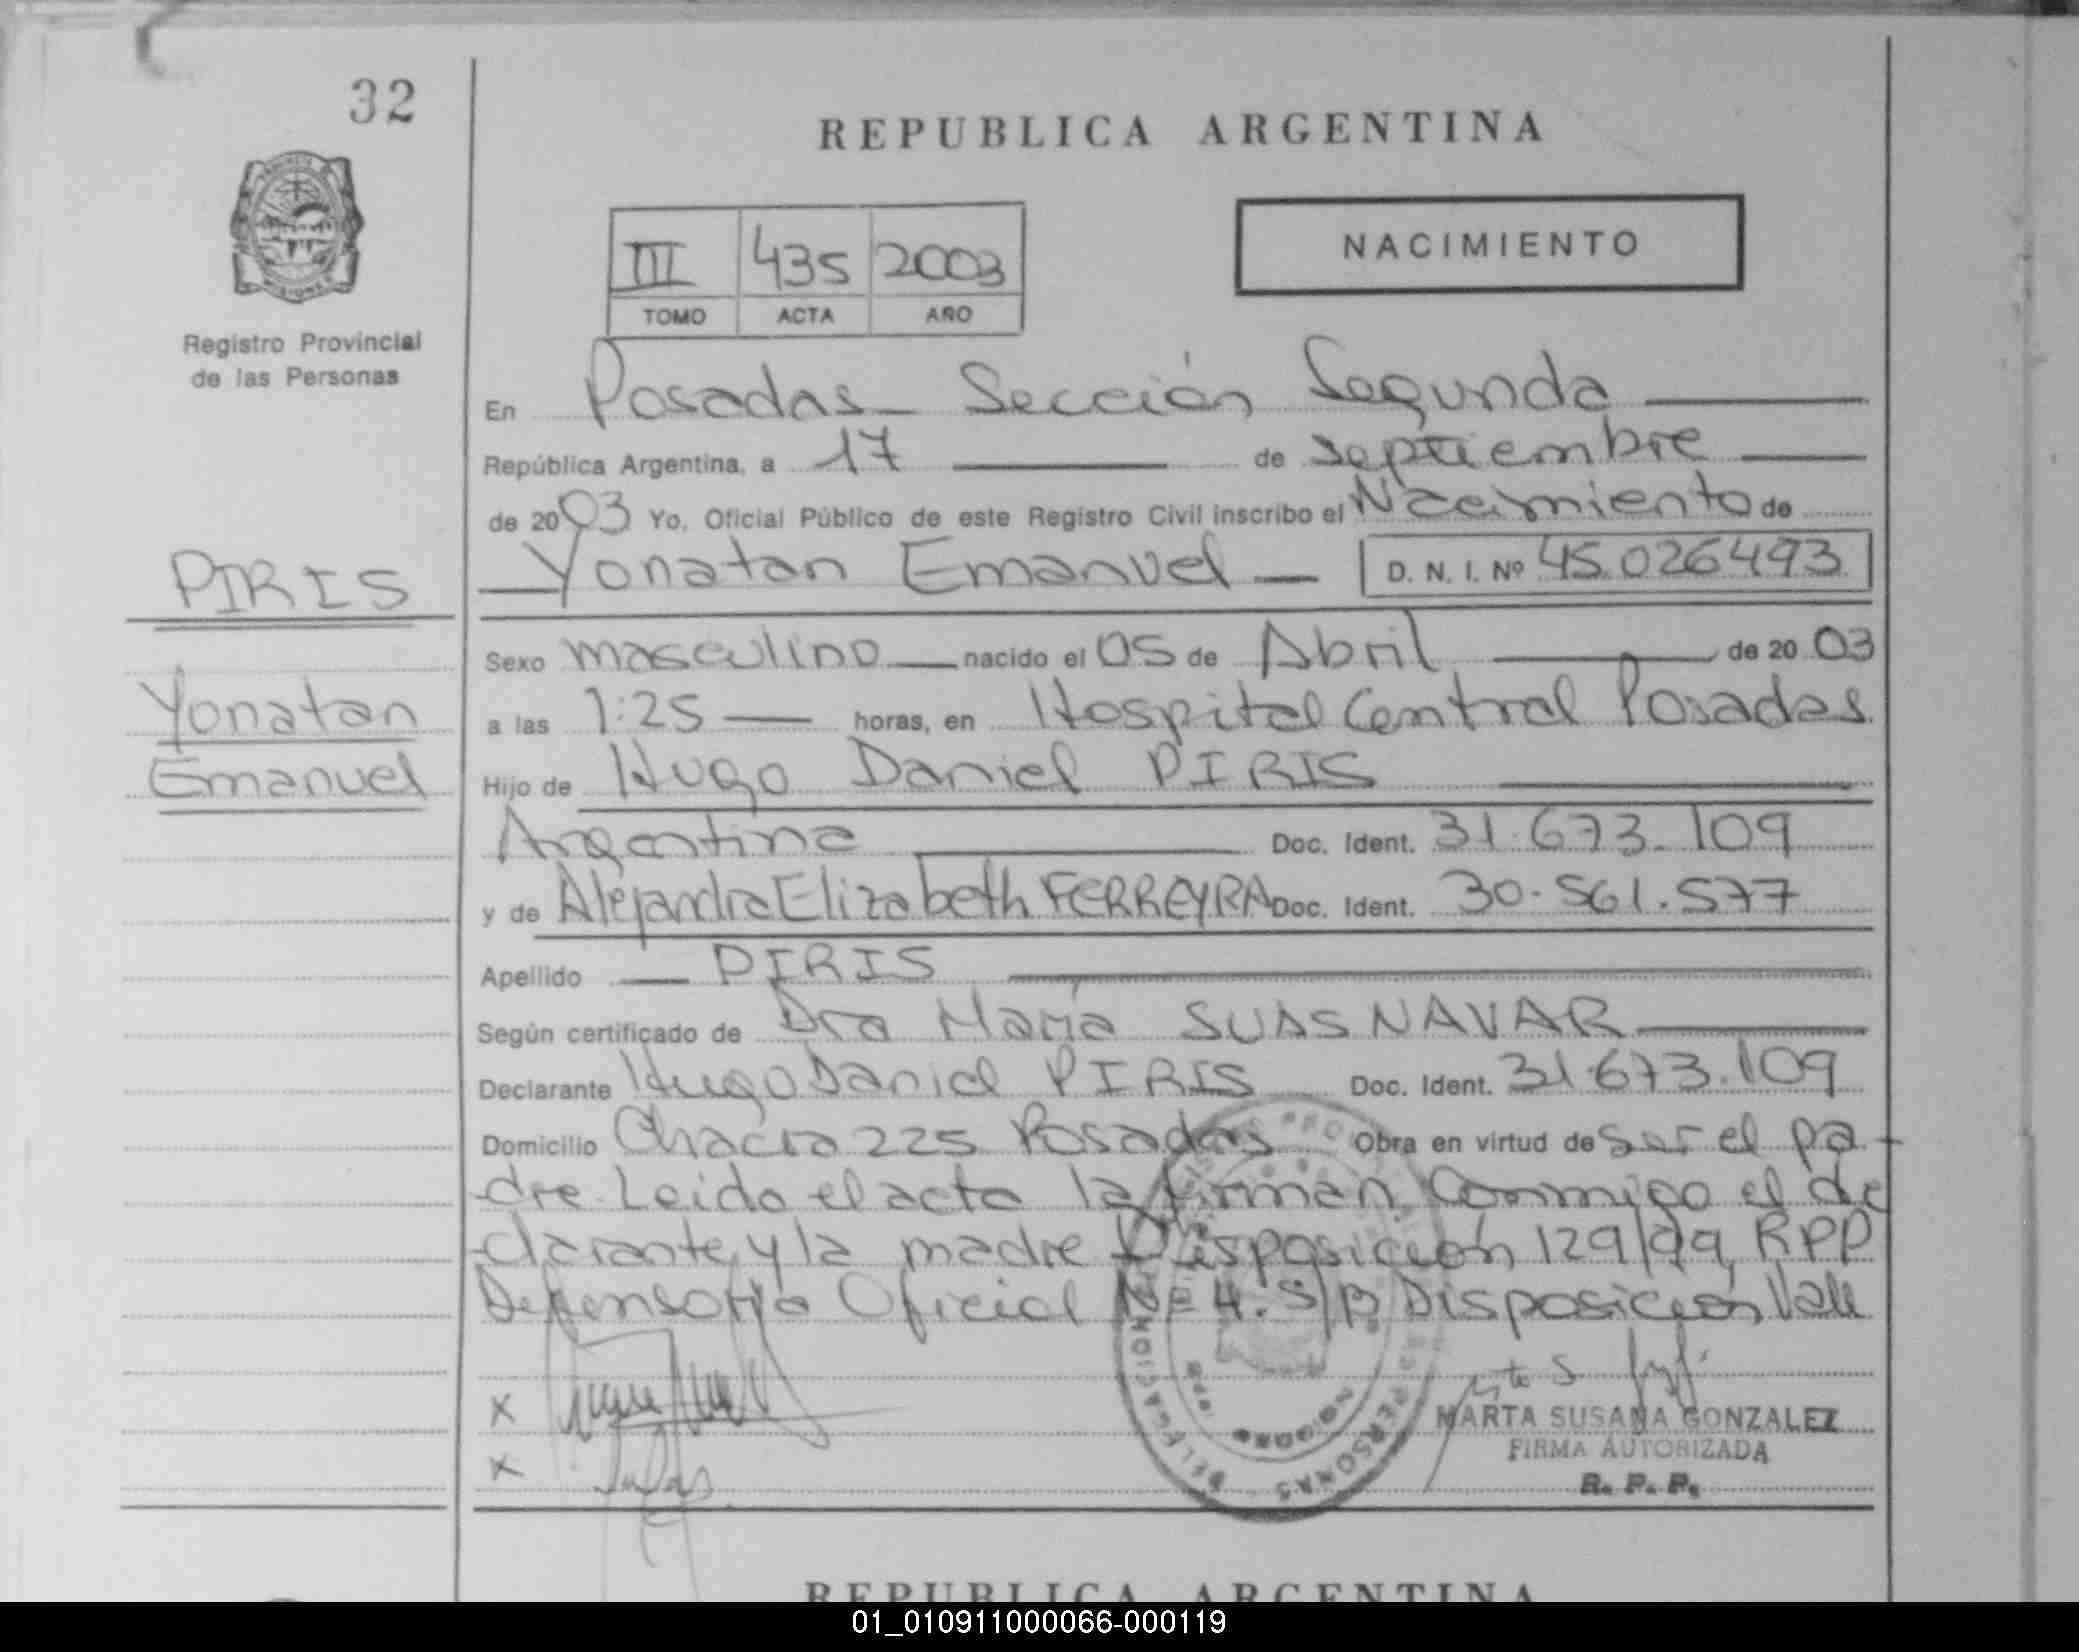 32
REPUBLICA ARGENTINA
III 435 2003
TOMO ACTA AÑO
NACIMIENTO
Registro Provincial
de las Personas
En Posadas - Sección Segunda
República Argentina, a 17 de septiembre
de 2003 Yo, Oficial Público de este Registro Civil inscribo el Nacimiento de
Yonatan Emanuel D. N. I. Nº 45.026493
PIRIS
Yonatan
Emanuel
Sexo masculino nacido el 05 de Abril de 2003
a las 1:25 horas, en Hospital Central Posadas
Hijo de Hugo Daniel PIRIS
Argentina Doc. Ident. 31.673.109
y de Alejandra Elizabeth FERREYRA Doc. Ident. 30.561.577
Apellido PIRIS
Según certificado de Dra María SUASNAVAR
Declarante Hugo Daniel PIRIS Doc. Ident. 31.673.109
Domicilio Chacra 225 Posadas Obra en virtud de ser el pa-
dre. Leido el acta la firman conmigo el de
clarante y la madre Disposición 129/99 RPP
Defensoría Oficial Nº 4. S/B Disposición Vale
x
x
MARTA SUSANA GONZALEZ
FIRMA AUTORIZADA
R. P. P.
REPUBLICA ARGENTINA
01_010911000066-000119